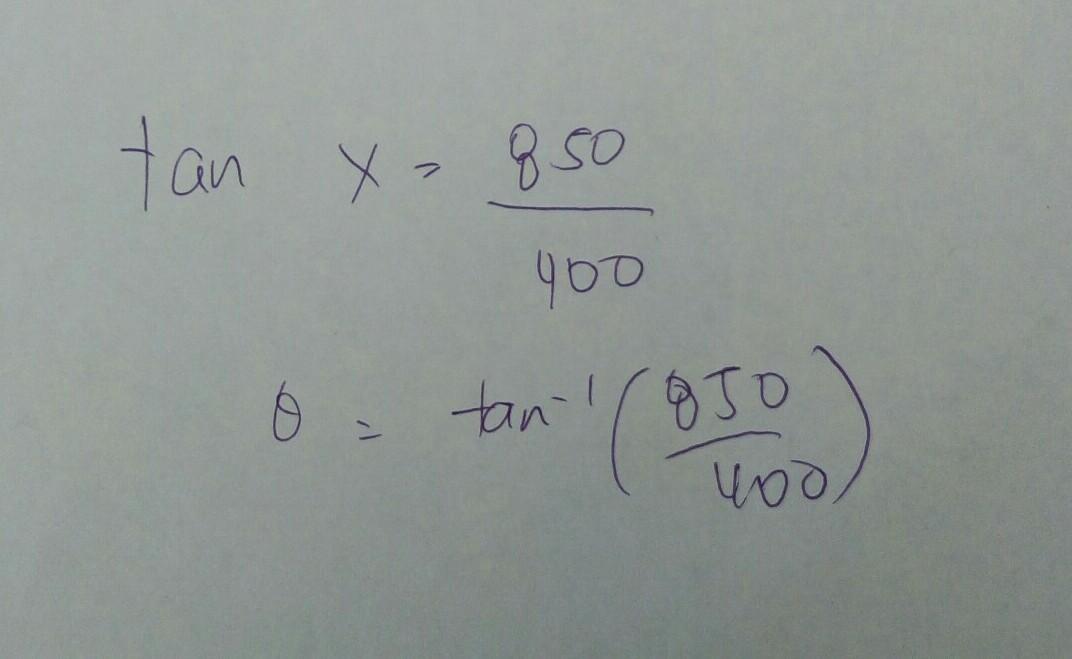 tan x = 850/400
θ = tan⁻¹(850/400)